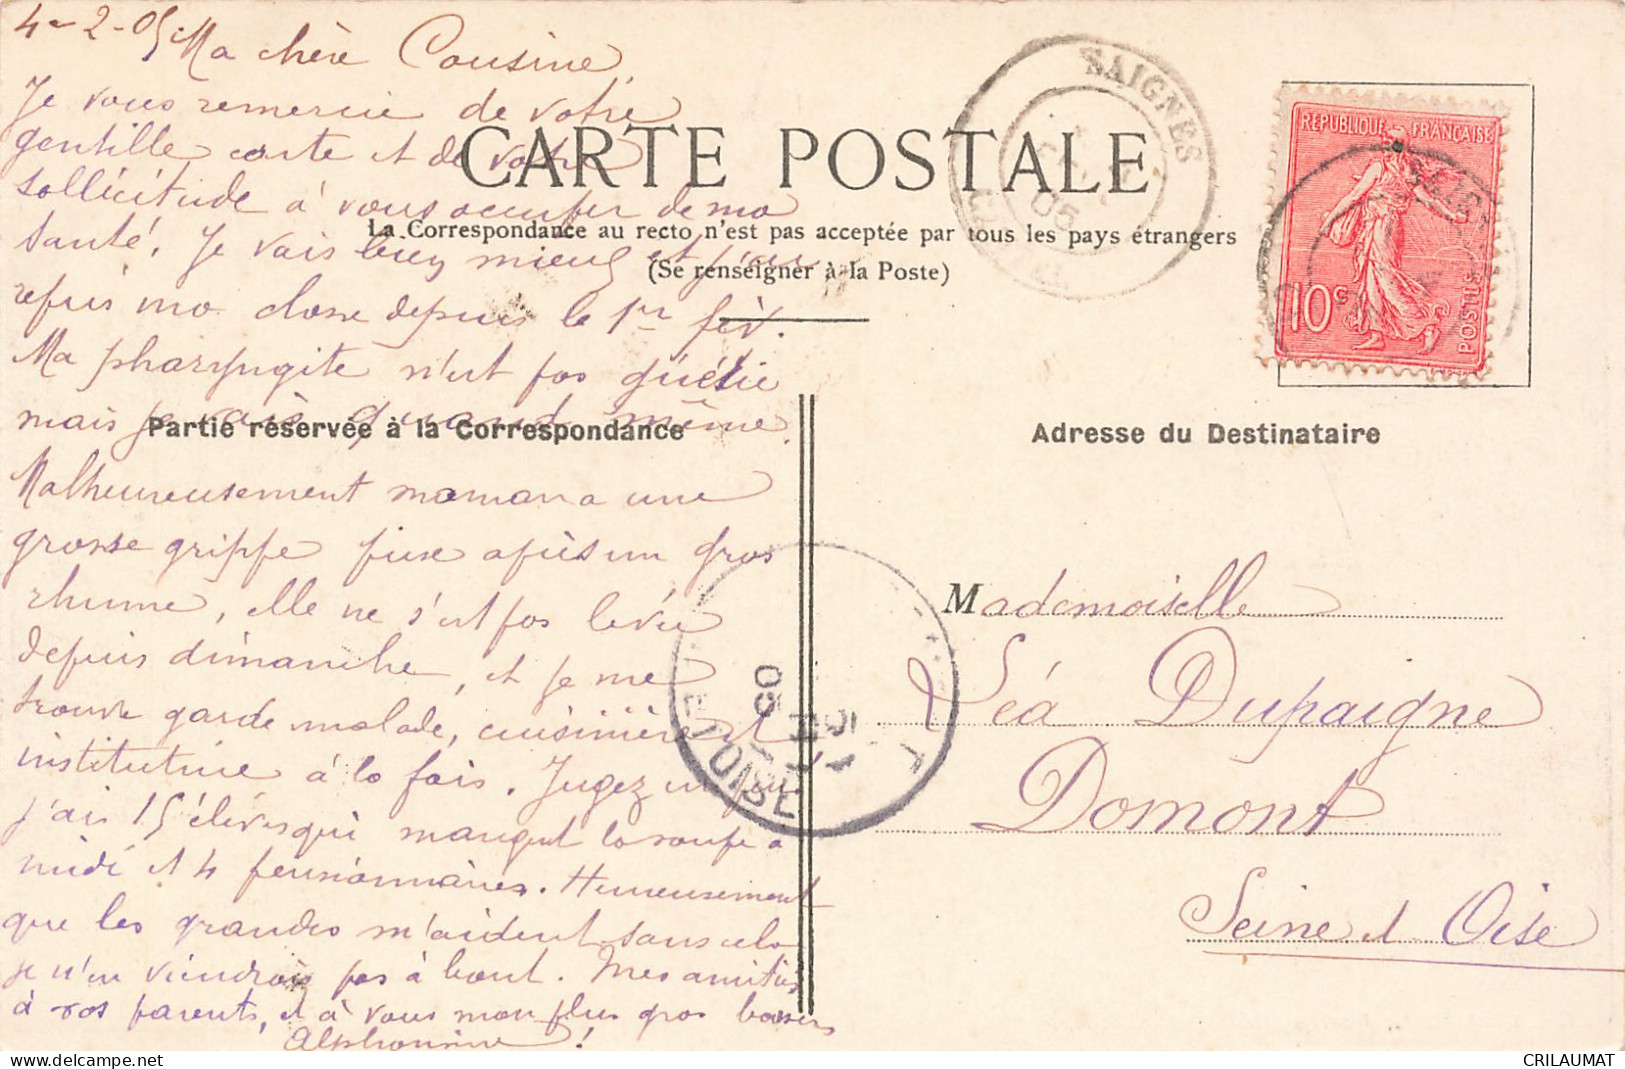 4-2-05. Ma chère Cousine,
Je vous remercie de votre
gentille carte et de votre
sollicitude à vous occuper de ma
santé. Je vais bien mieux et j'ai
repris ma classe depuis le 1er fév.
Ma pharyngite n'est pas guérie
mais je vais quand même.
Malheureusement maman a une
grosse grippe prise après un gros
rhume, elle ne s'est pas levée
depuis dimanche, et je me
trouve garde malade, cuisinière et
institutrice à la fois. Jugez un peu
j'ai 15 élèves qui mangent la soupe à
midi et 4 pensionnaires. Heureusement
que les grandes m'aident sans cela
je n'en viendrais pas à bout. Mes amitiés
à vos parents, et à vous mon plus gros baisers
Alphonsine !
CARTE POSTALE
La Correspondance au recto n'est pas acceptée par tous les pays étrangers
(Se renseigner à la Poste)
Partie réservée à la Correspondance
Adresse du Destinataire
SAIGNES
05
REPUBLIQUE FRANÇAISE
10c
POSTES
ET OISE
05
Mademoiselle
Léa Dupaigne
Domont
Seine et Oise
CRILAUMAT